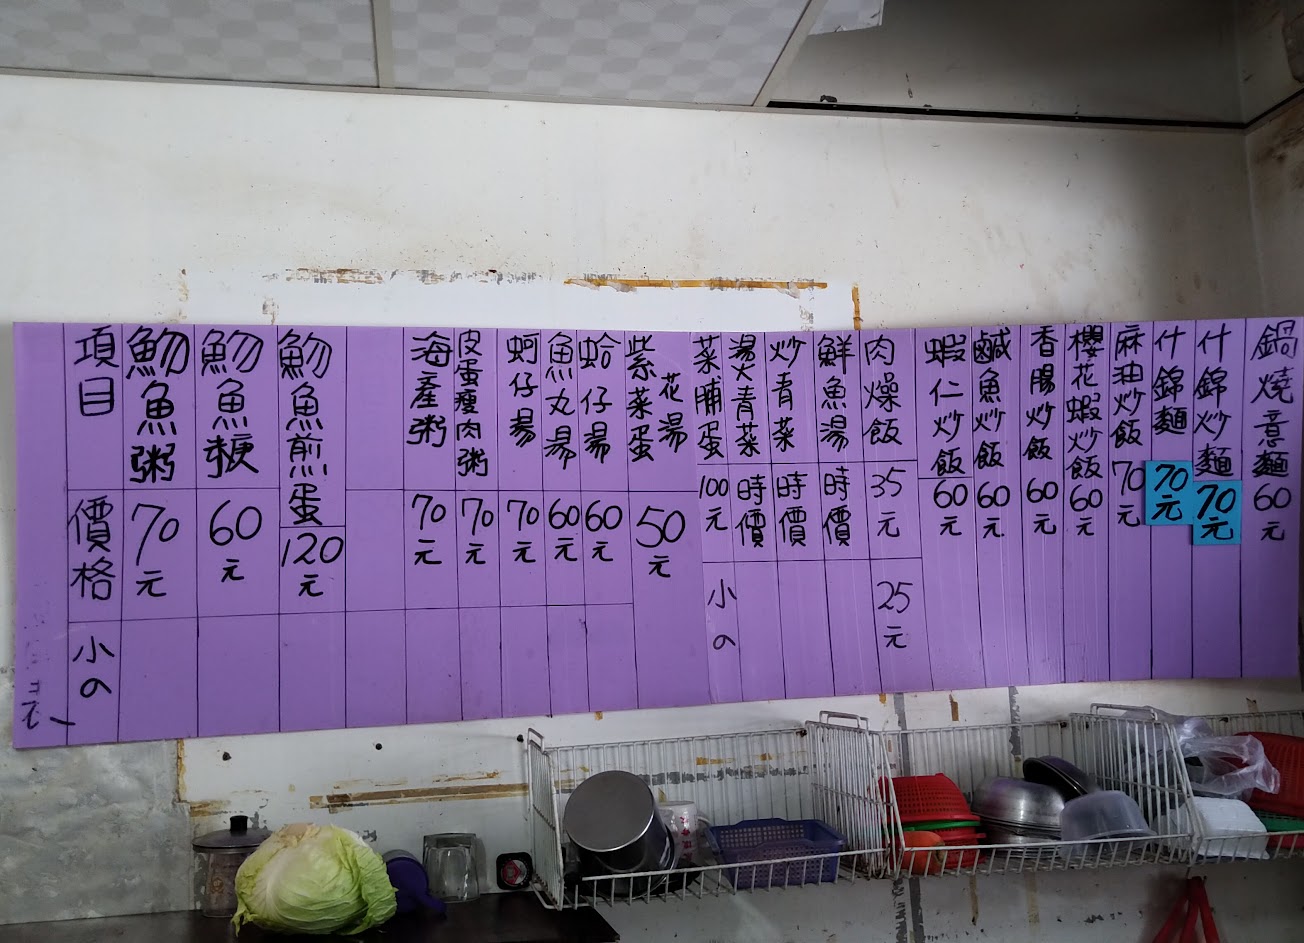 項目 價格 小の
魩魚粥 70元
魩魚焿 60元
魩魚煎蛋 120元
海產粥 70元
皮蛋瘦肉粥 70元
蚵仔湯 70元
魚丸湯 60元
蛤仔湯 60元
紫菜蛋花湯 50元
菜脯蛋 100元 小の
燙青菜 時價
炒青菜 時價
鮮魚湯 時價
肉燥飯 35元 25元
蝦仁炒飯 60元
鹹魚炒飯 60元
香腸炒飯 60元
櫻花蝦炒飯 60元
麻油炒飯 70元
什錦麵 70元
什錦炒麵 70元
鍋燒意麵 60元